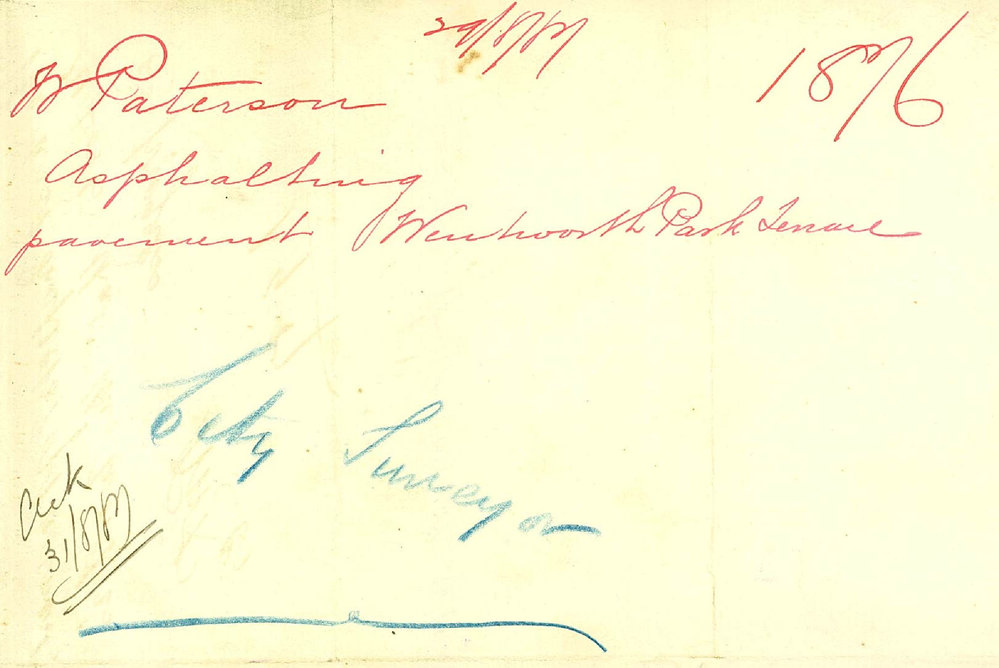 29/8/87
1876
W Paterson
Asphalting
pavement Wentworth Park Terrace
City Surveyor
Ack
31/8/87